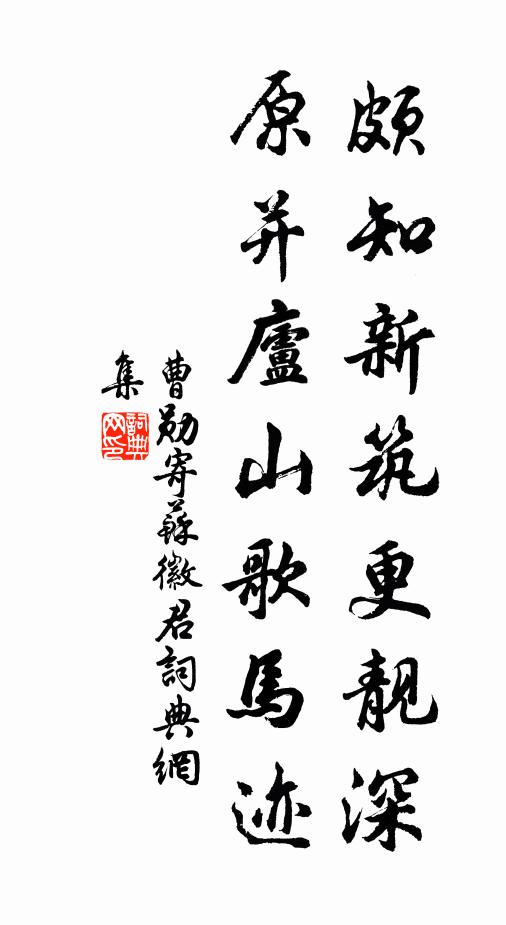 頗知新筑更靚深
原并廬山歌馬迹
曹勛寄蘇徽君詞典網
集
詞典
网印